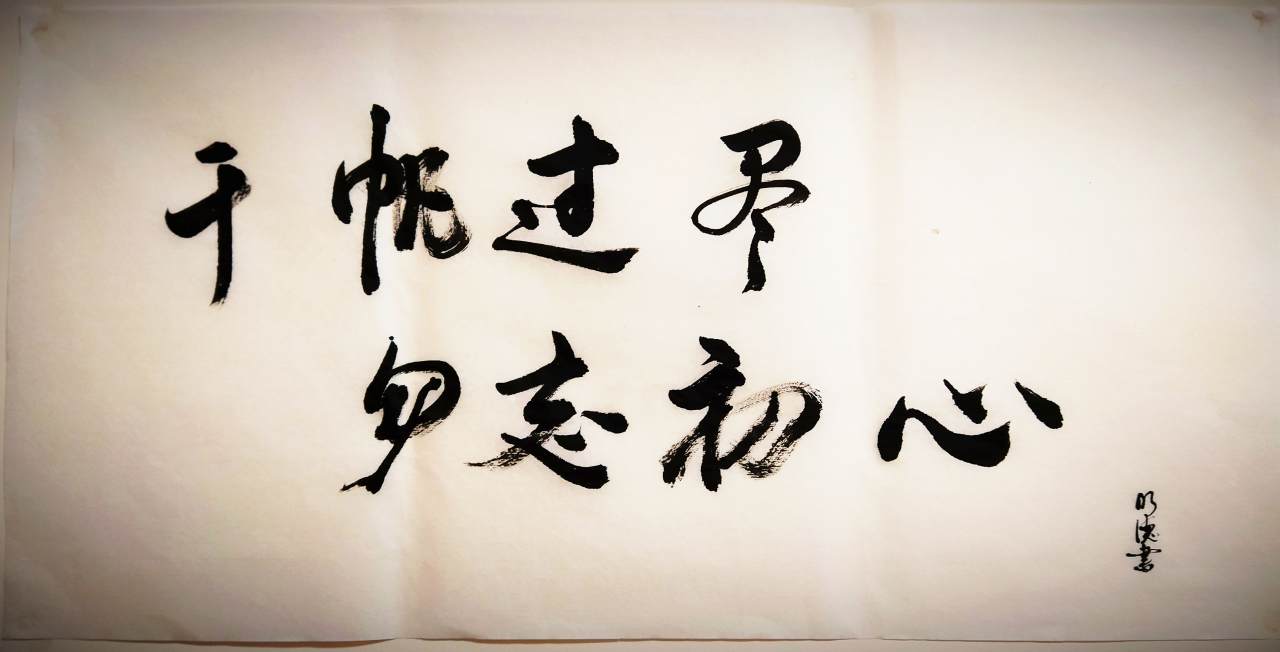 千帆过尽
勿忘初心
明德书